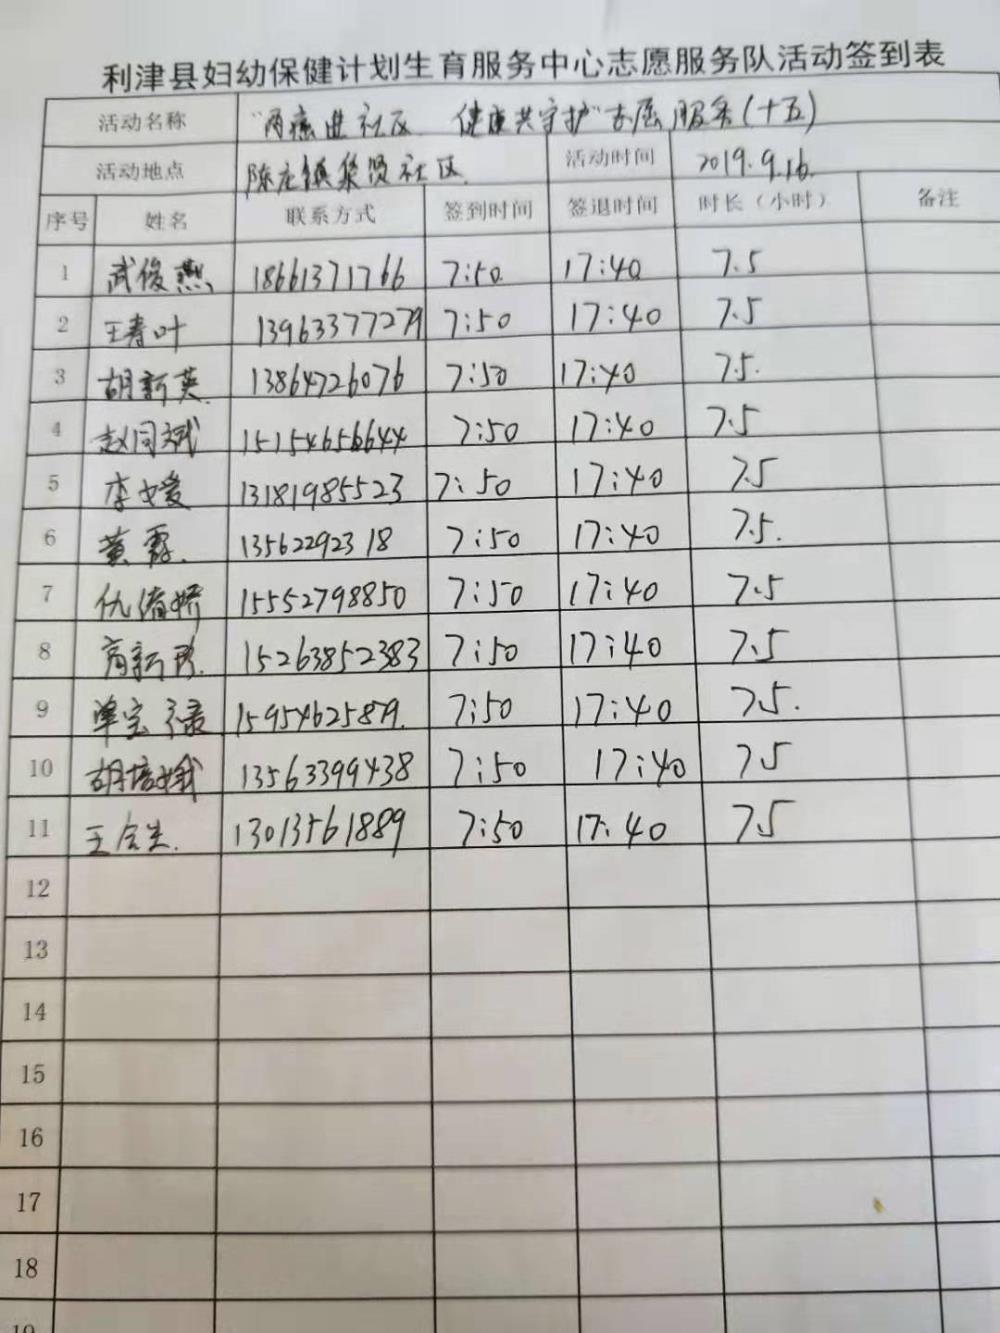 利津县妇幼保健计划生育服务中心志愿服务队活动签到表
活动名称 "两癌进社区 健康共守护"志愿服务(十五)
活动地点 陈庄镇集贤社区 活动时间 2019.9.16.
序号 姓名 联系方式 签到时间 签退时间 时长（小时） 备注
1 武俊燕 18661371766 7:50 17:40 7.5
2 王春叶 13963377279 7:50 17:40 7.5
3 胡新英 13864726076 7:50 17:40 7.5.
4 赵同斌 15154656644 7:50 17:40 7.5
5 李文爱 13181985523 7:50 17:40 7.5
6 黄霞. 13562292318 7:50 17:40 7.5.
7 仇倩娇 15552798850 7:50 17:40 7.5
8 商新 15263852383 7:50 17:40 7.5
9 宝 15954625879. 7:50 17:40 7.5.
10 胡培娥 13563399438 7:50 17:40 7.5
11 王 13013561889 7:50 17:40 7.5
12
13
14
15
16
17
18
19